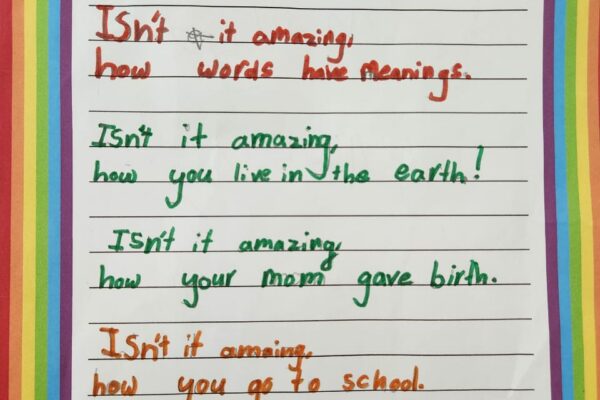 Isn't it amazing,
how words have meanings.
Isn't it amazing,
how you live in the earth!
Isn't it amazing,
how your mom gave birth.
Isn't it amaing,
how you go to school.